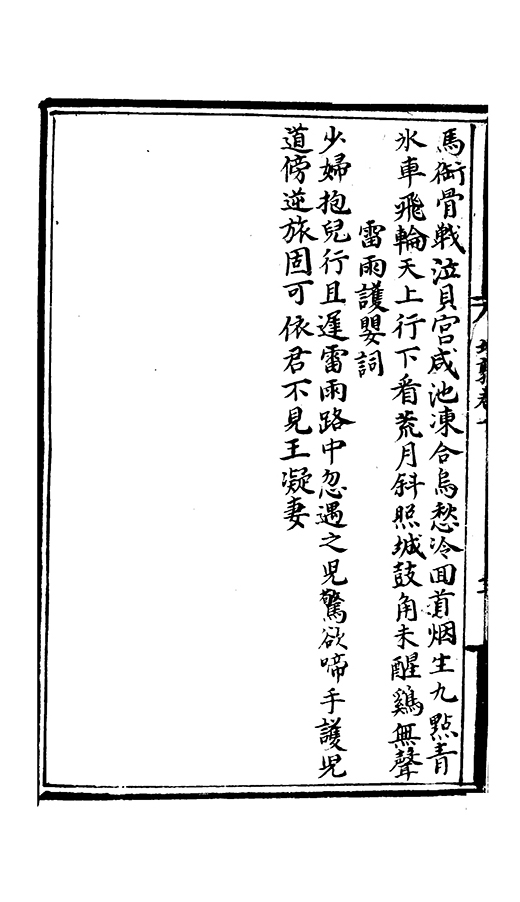 馬銜骨戰泣貝宮咸池凍合烏愁冷回首烟生九點青
氷車飛輪天上行下看荒月斜照城鼓角未醒鷄無聲
雷雨護嬰詞
少婦抱兒行且遲雷雨路中忽遇之兒驚欲啼手護兒
道傍逆旅固可依君不見王凝妻